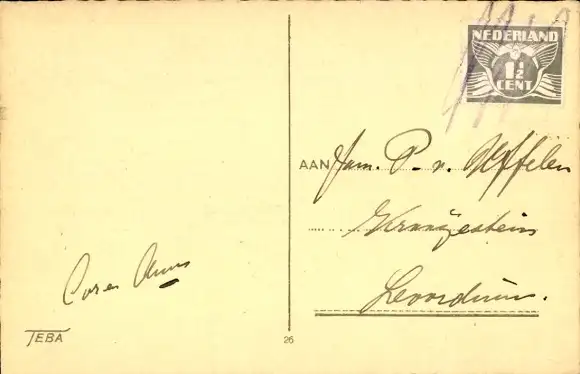 NEDERLAND
1½
CENT
AAN Fam. P. v. Uffelen
Kranjestein
Loosduinen.
Cor en Annie
TEBA
26